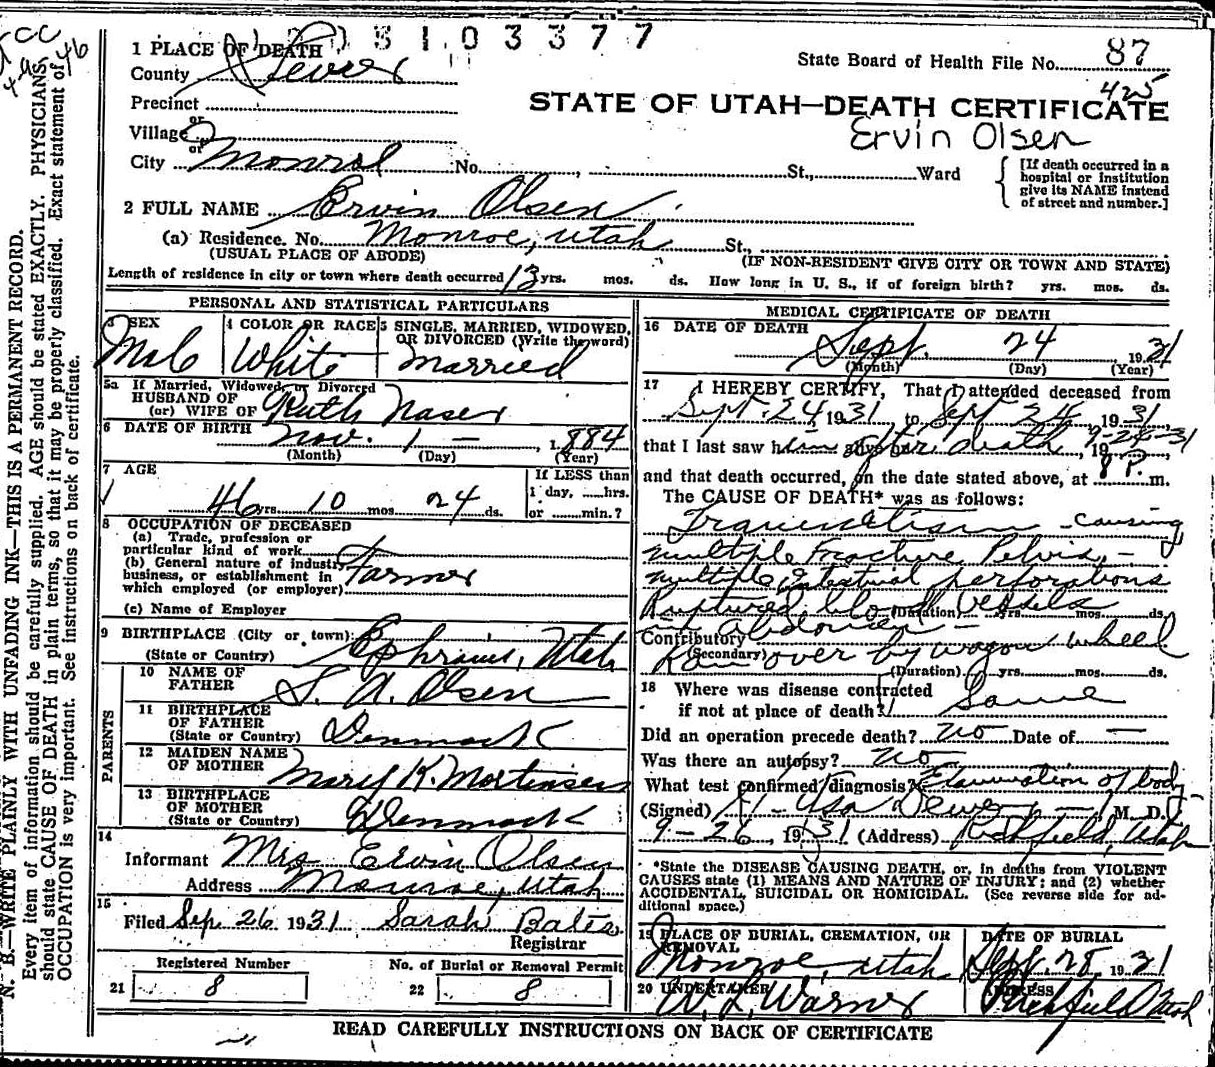 3 1 0 3 3 7 7
1 PLACE OF DEATH
State Board of Health File No. 87
425
County Sevier
STATE OF UTAH—DEATH CERTIFICATE
Ervin Olsen
Precinct
or
Village
or
City Monroe No. , St., Ward
[If death occurred in a
hospital or institution
give its NAME instead
of street and number.]
2 FULL NAME Ervin Olsen
(a) Residence. No. Monroe, Utah St.,
(USUAL PLACE OF ABODE)
(IF NON-RESIDENT GIVE CITY OR TOWN AND STATE)
Length of residence in city or town where death occurred 13 yrs. mos. ds. How long in U. S., if of foreign birth? yrs. mos. ds.
PERSONAL AND STATISTICAL PARTICULARS
3 SEX
Male
4 COLOR OR RACE
White
5 SINGLE, MARRIED, WIDOWED,
OR DIVORCED (Write the word)
Married
5a If Married, Widowed, or Divorced
HUSBAND OF
(or) WIFE OF Ruth Naser
6 DATE OF BIRTH Nov. 1 — 1884
(Month) (Day) (Year)
7 AGE
46 yrs 10 mos 24 ds.
If LESS than
1 day, hrs.
or min.?
8 OCCUPATION OF DECEASED
(a) Trade, profession or
particular kind of work
(b) General nature of industry,
business, or establishment in
which employed (or employer)
Farmer
(c) Name of Employer
9 BIRTHPLACE (City or town)
(State or Country) Ephraim, Utah
PARENTS
10 NAME OF
FATHER S. A. Olsen
11 BIRTHPLACE
OF FATHER
(State or Country) Denmark
12 MAIDEN NAME
OF MOTHER Mary K. Mortensen
13 BIRTHPLACE
OF MOTHER
(State or Country) Denmark
14
Informant Mrs Ervin Olsen
Address Monroe, Utah
15
Filed Sep. 26 1931 Sarah Bates
Registrar
Registered Number
21 8
No. of Burial or Removal Permit
22 8
MEDICAL CERTIFICATE OF DEATH
16 DATE OF DEATH
Sept. 24, 1931
(Month) (Day) (Year)
17 I HEREBY CERTIFY, That I attended deceased from
Sept. 24 1931 to Sept 24, 1931,
that I last saw him alive on after death, 19 9-24-31
and that death occurred, on the date stated above, at 8 P. m.
The CAUSE OF DEATH* was as follows:
Traumatism - causing
multiple Fracture Pelvis, —
multiple intestinal perforations
Ruptured blood vessels
(Duration) yrs. mos. ds.
Abdomen —
Contributory
(Secondary)
Ran over by wagon wheel
(Duration) yrs. mos. ds.
18 Where was disease contracted
if not at place of death? Same
Did an operation precede death? No Date of —
Was there an autopsy? No
What test confirmed diagnosis? Examination of body
(Signed) Asa Dewey M. D.
9-26, 1931 (Address) Richfield, Utah
*State the DISEASE CAUSING DEATH, or, in deaths from VIOLENT
CAUSES state (1) MEANS AND NATURE OF INJURY; and (2) whether
ACCIDENTAL, SUICIDAL OR HOMICIDAL. (See reverse side for ad-
ditional space.)
19 PLACE OF BURIAL, CREMATION, OR
REMOVAL
Monroe, Utah
DATE OF BURIAL
Sept. 28, 1931
20 UNDERTAKER
W. L. Warner
ADDRESS
Richfield Utah
READ CAREFULLY INSTRUCTIONS ON BACK OF CERTIFICATE
N. B.—WRITE PLAINLY WITH UNFADING INK—THIS IS A PERMANENT RECORD.
Every item of information should be carefully supplied. AGE should be stated EXACTLY. PHYSICIANS
should state CAUSE OF DEATH in plain terms, so that it may be properly classified. Exact statement of
OCCUPATION is very important. See instructions on back of certificate.